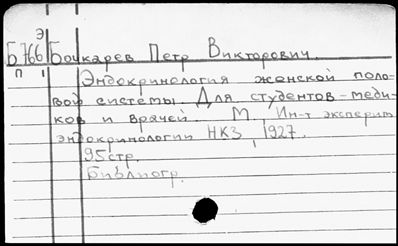 Э
Б766 Бочкарев Петр Викторович.
П
Эндокринология женской поло-
вой системы. Для студентов-меди-
ков и врачей. М., Ин-т эксперим.
эндокринологии НКЗ, 1927.
95 стр.
Библиогр.